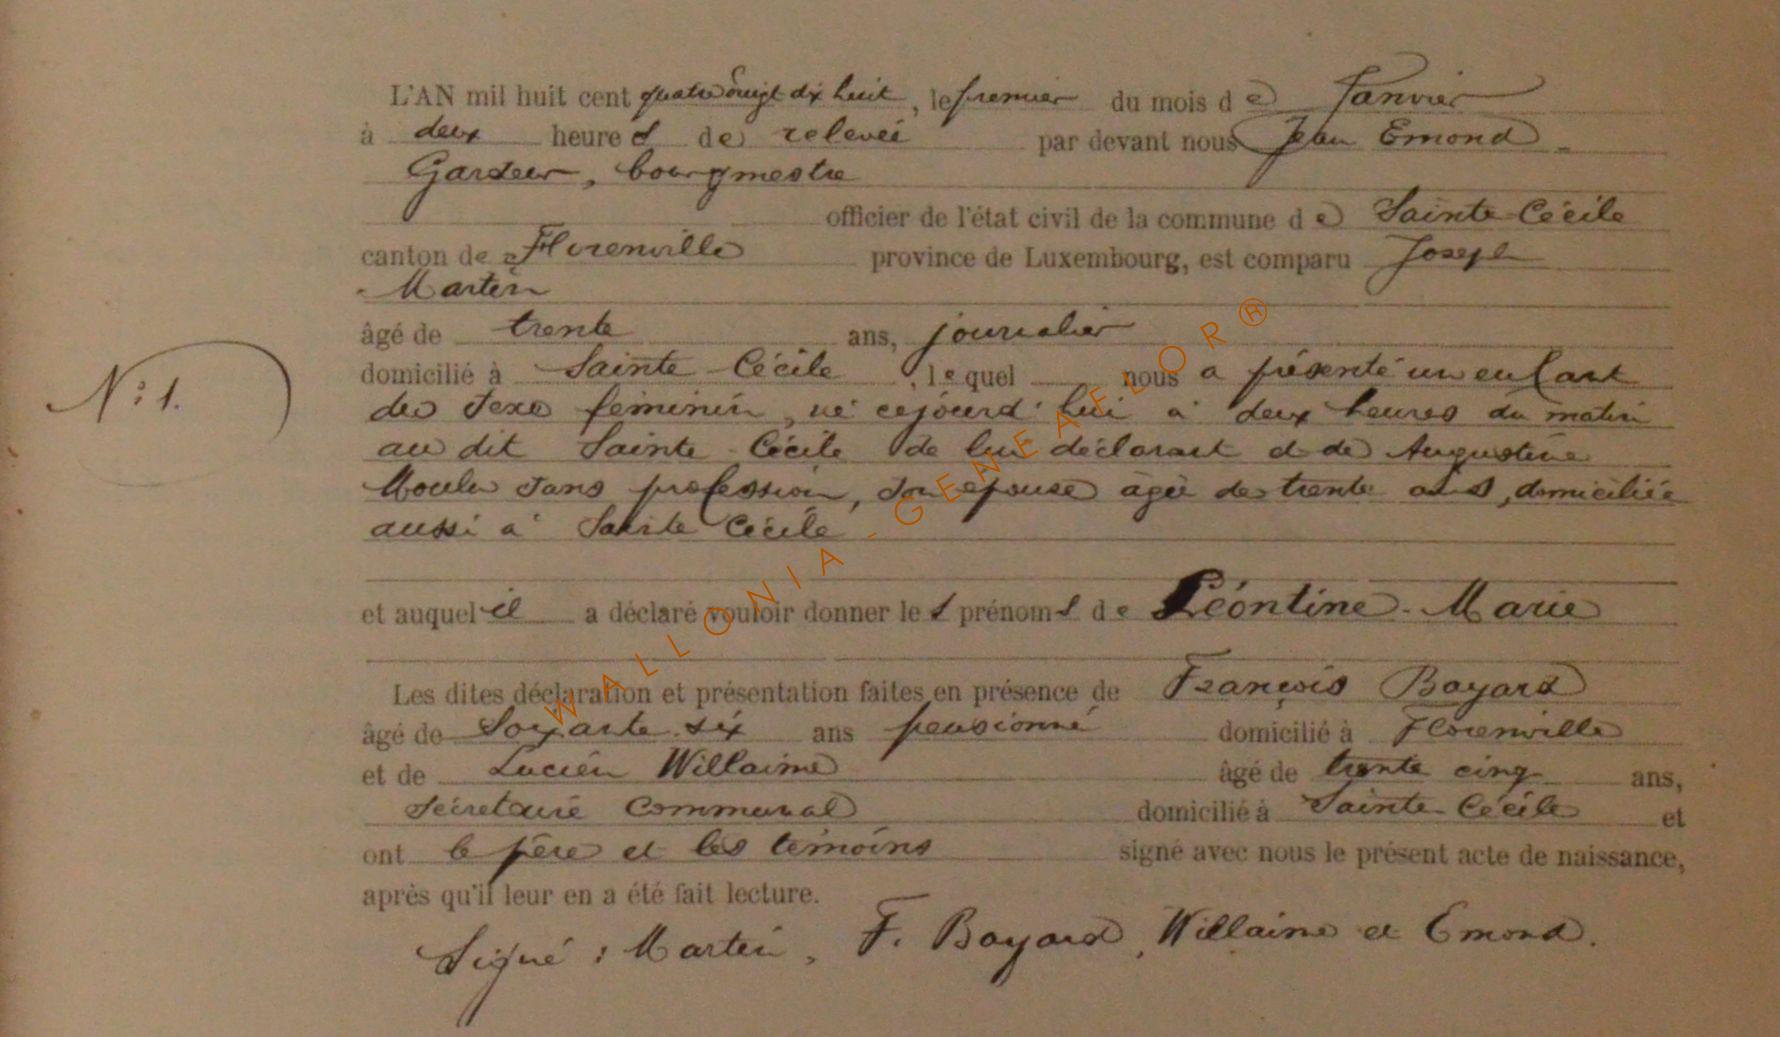 L'AN mil huit cent quatre vingt dix huit, le premier du mois de Janvier
à deux heures de relevée par devant nous Jean Emond
Gardeur, bourgmestre
officier de l'état civil de la commune de Sainte-Cécile
canton de Florenville province de Luxembourg, est comparu Joseph
Martin
âgé de trente ans, journalier
domicilié à Sainte Cécile, lequel nous a présenté un enfant
N°: 1.
du sexe féminin, né cejourd'hui à deux heures du matin
au dit Sainte-Cécile de lui déclarant et de Augustine
sans profession, son épouse âgée de trente ans, domiciliée
aussi à Sainte Cécile
et auquel il a déclaré vouloir donner les prénoms de Léontine-Marie
Les dites déclaration et présentation faites en présence de François Bayard
âgé de Soixante-six ans pensionné domicilié à Florenville
et de Lucien Willaime âgé de trente cinq ans,
Secrétaire Communal domicilié à Sainte-Cécile et
ont le père et les témoins signé avec nous le présent acte de naissance,
après qu'il leur en a été fait lecture.
Signé : Martin, F. Bayard, Willaime et Emond.
WALLONIA - GENEAFLOR®